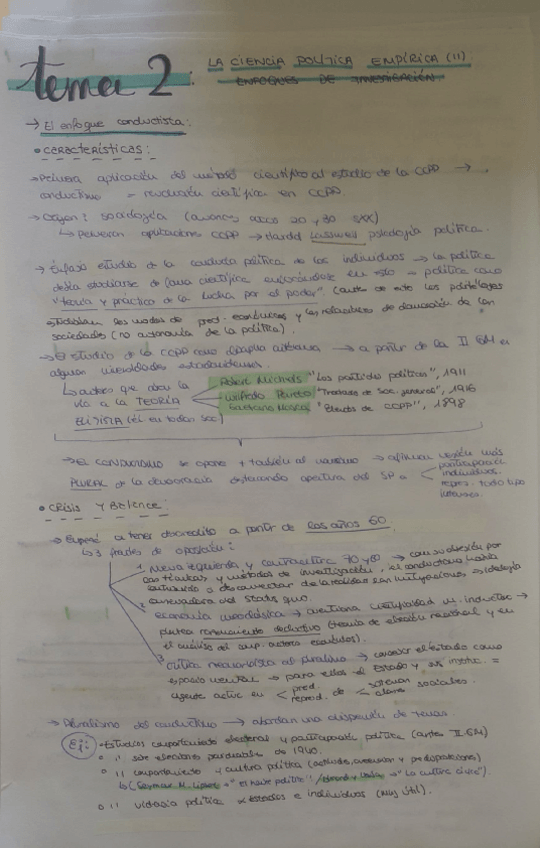 tema 2:
LA CIENCIA POLÍTICA EMPÍRICA (II)
ENFOQUES DE INVESTIGACIÓN
→ El enfoque conductista:
• CARACTERÍSTICAS:
→ Primera aplicación del método científico al estudio de la CCPP →
conductismo = revolución científica en CCPP.
→ Origen: sociología (avances años 20 y 30 SXX)
↳ Primeras aplicaciones CCPP → Harold Lasswell psicología política.
→ Énfasis estudio de la conducta política de los individuos → la política
debía estudiarse de forma científica enfocándose en esto → política como
"teoría y práctica de la lucha por el poder" (antes de esto los politólogos
estudiaban los modos de prod. económicos y las relaciones de dominación de las
sociedades (no autonomía de la política).
→ El estudio de la CCPP como disciplina autónoma → a partir de la II GM en
algunas universidades estadounidenses.
↳ autores que abren la
vía a la TEORÍA
ELITISTA (él en todas soc)
Robert Michels "Los partidos políticos", 1911
Wilfredo Pareto "Tratado de Soc. general", 1916
Gaetano Mosca "Elements de CCPP", 1898
→ El conductismo se opone + también al marxismo → afirman visión más
PLURAL de la democracia destacando apertura del SP a
participación
individuos.
repres. todo tipo
intereses.
• CRISIS Y BALANCE:
→ Empezó a tener descrédito a partir de los años 60.
↳ 3 frentes de oposición:
1. Nueva izquierda y contracultura 70 y 60 → con su obsesión por
las técnicas y métodos de investigación, el conductismo había
contribuido a desconectar de la realidad → ideología
conservadora del status quo.
2. economía neoclásica → cuestiona inductivo →
plantea razonamiento deductivo (teoría de elección racional y en
el análisis del comp. actores
3. crítica neomarxista al pluralismo → concebir el estado como
espacio neutral → para ellos el Estado y sus instit. =
agente activo en < prod. reprod. de < sistemas clases sociales.
→ Pluralismo del conductismo → abordan una dispersión de temas.
Ej:
• Estudios comportamiento electoral y participación política (antes II GM)
• " sobre elecciones presidenciales de 1940.
• " comportamiento y cultura política (actitudes, y predisposiciones)
↳ (Seymour M. Lipset → "El hombre político" / Almond y Verba → "La cultura cívica").
• " violencia política × estados e individuos (Muy útil).